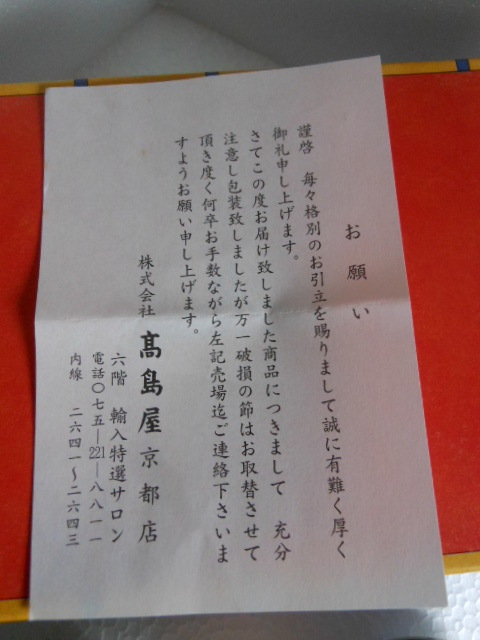 お願い
謹啓　毎々格別のお引立を賜りまして誠に有難く厚く
御礼申し上げます。
さてこの度お届け致しました商品につきまして　充分
注意し包装致しましたが万一破損の節はお取替させて
頂き度く何卒お手数ながら左記売場迄ご連絡下さいま
すようお願い申し上げます。
株式会社　髙島屋京都店
六階　輸入特選サロン
電話〇七五―221―八八一一
内線　二六四一〜二六四三